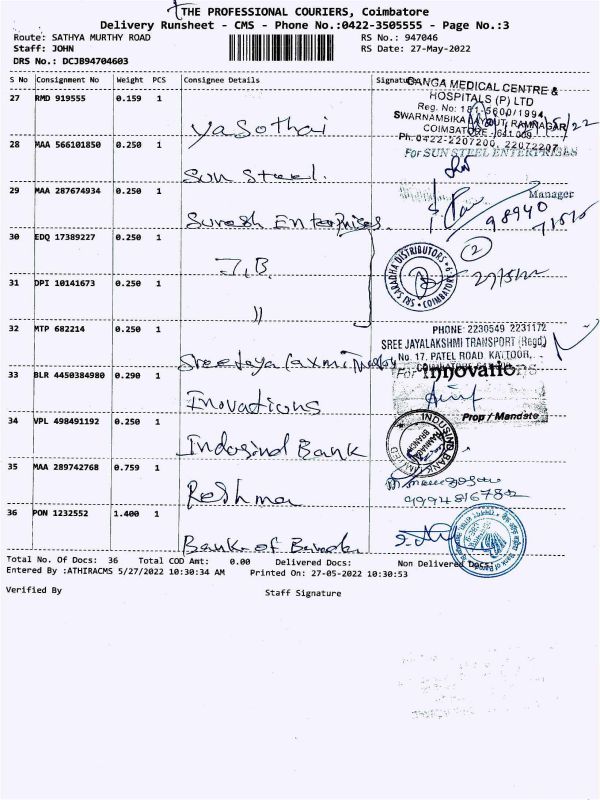 THE PROFESSIONAL COURIERS, Coimbatore
Delivery Runsheet - CMS - Phone No.:0422-3505555 - Page No.:3
Route: SATHYA MURTHY ROAD
RS No.: 947046
Staff: JOHN
RS Date: 27-May-2022
DRS No.: DCJB94704603
S No Consignment No Weight PCS Consignee Details Signature
GANGA MEDICAL CENTRE &
HOSPITALS (P) LTD
27 RMD 919555 0.159 1
Reg. No: 181-5600/1994
SWARNAMBIKA LAYOUT, RAMNAGAR
COIMBATORE - 641 009
Yasothai
Ph: 0422-2207200, 22072207
28 MAA 566101850 0.250 1
For SUN STEEL ENTERPRISES
Sun Steel.
29 MAA 287674934 0.250 1
Manager
98940
Suresh Enterprises.
30 EDQ 17389227 0.250 1
J.B.
2
SARADHA DISTRIBUTORS
COIMBATORE
27/5/22
31 DPI 10141673 0.250 1
"
32 MTP 682214 0.250 1
PHONE: 2230549 2231172
SREE JAYALAKSHMI TRANSPORT (Regd)
No. 17, PATEL ROAD, KATTOOR,
Sree Jaya Laxmi
33 BLR 4450384980 0.290 1
For Innovations
Inovations
Prop / Mandate
34 VPL 498491192 0.250 1
INDUSIND BANK LIMITED
RAMNAGAR
BRANCH
Indosind Bank
35 MAA 289742768 0.759 1
Reshma
36 PON 1232552 1.400 1
Bank of Baroda
Total No. Of Docs: 36 Total COD Amt: 0.00 Delivered Docs: Non Delivered Docs:
Entered By :ATHIRACMS 5/27/2022 10:30:34 AM Printed On: 27-05-2022 10:30:53
Verified By
Staff Signature